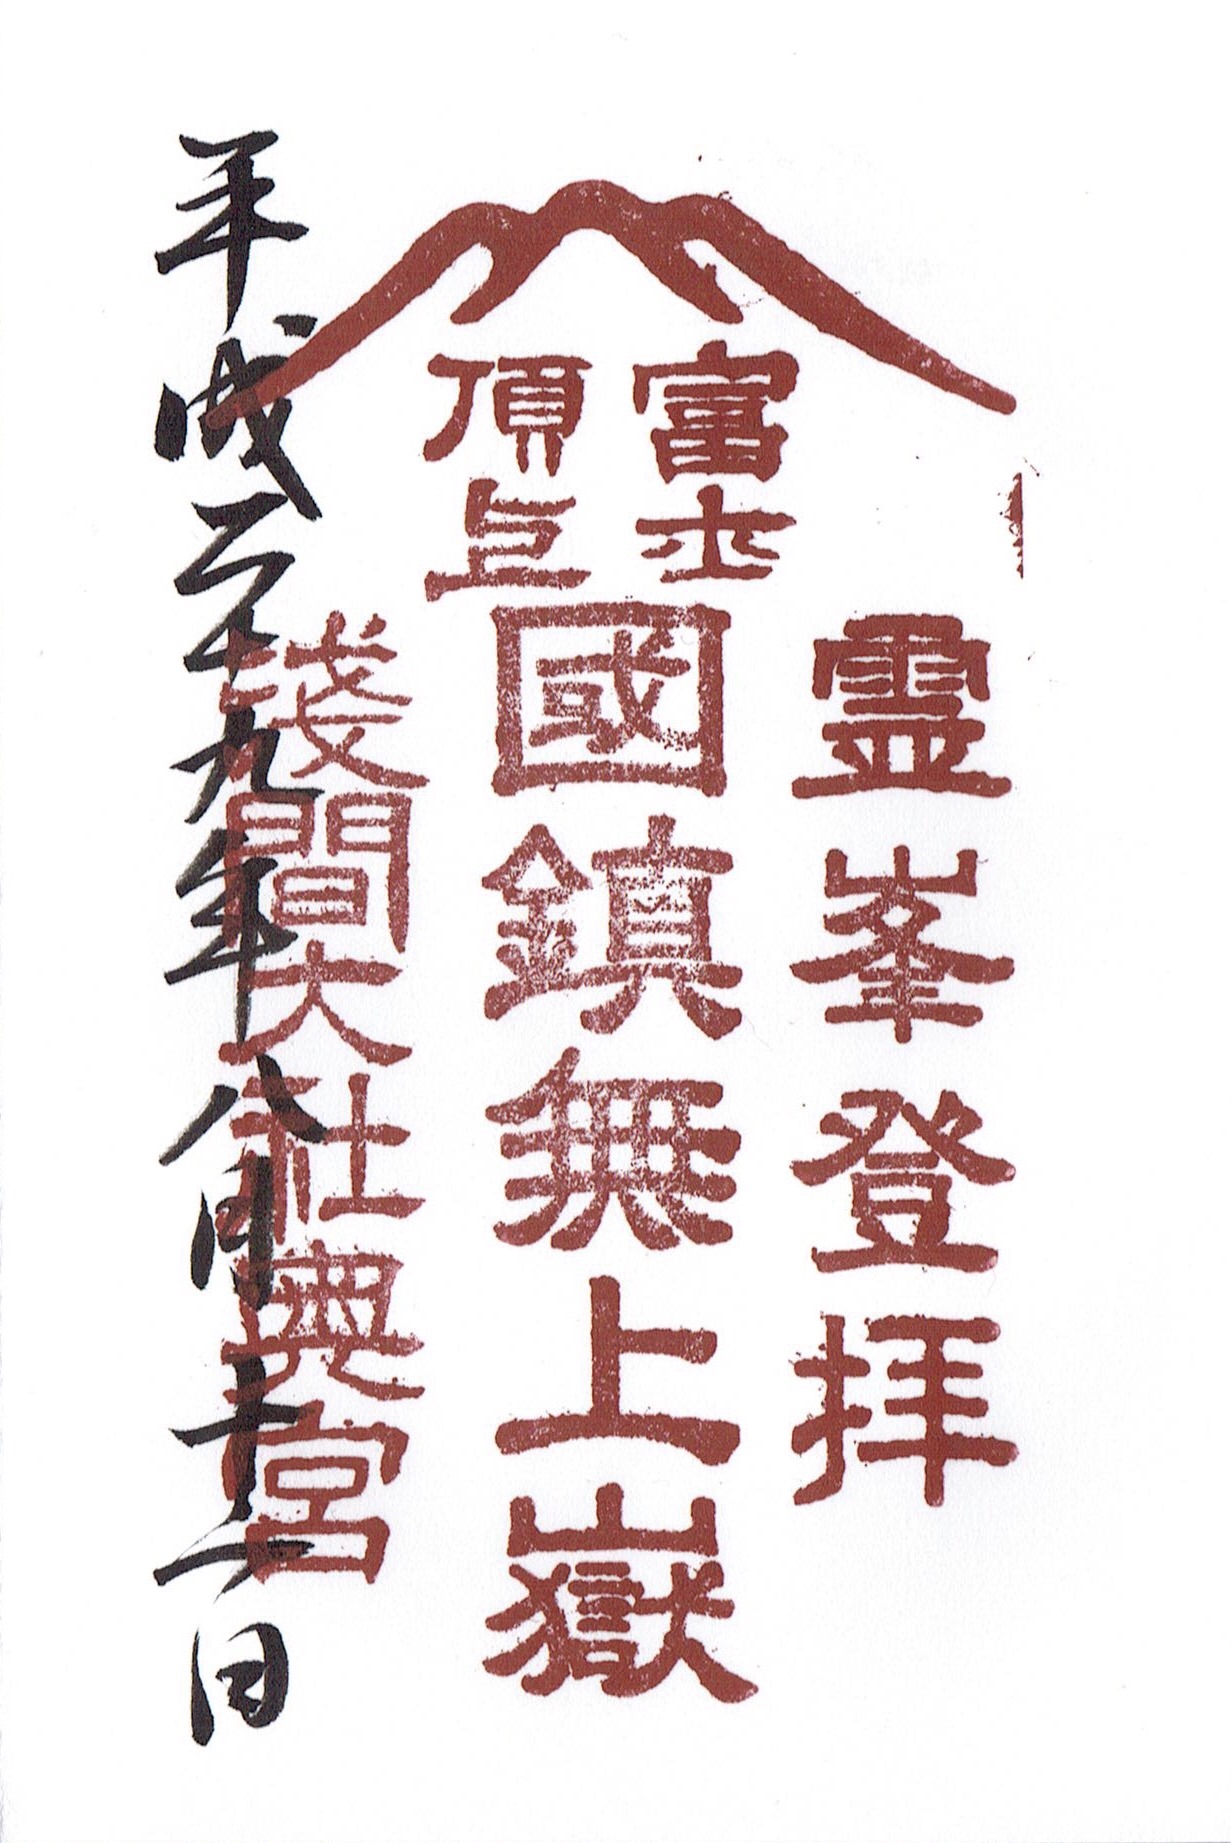 富士
頂上
霊峯登拝
國鎮無上嶽
淺間大社奥宮
平成二十九年八月十一日